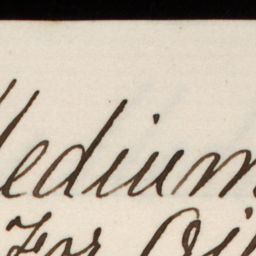 Medium
For Oil